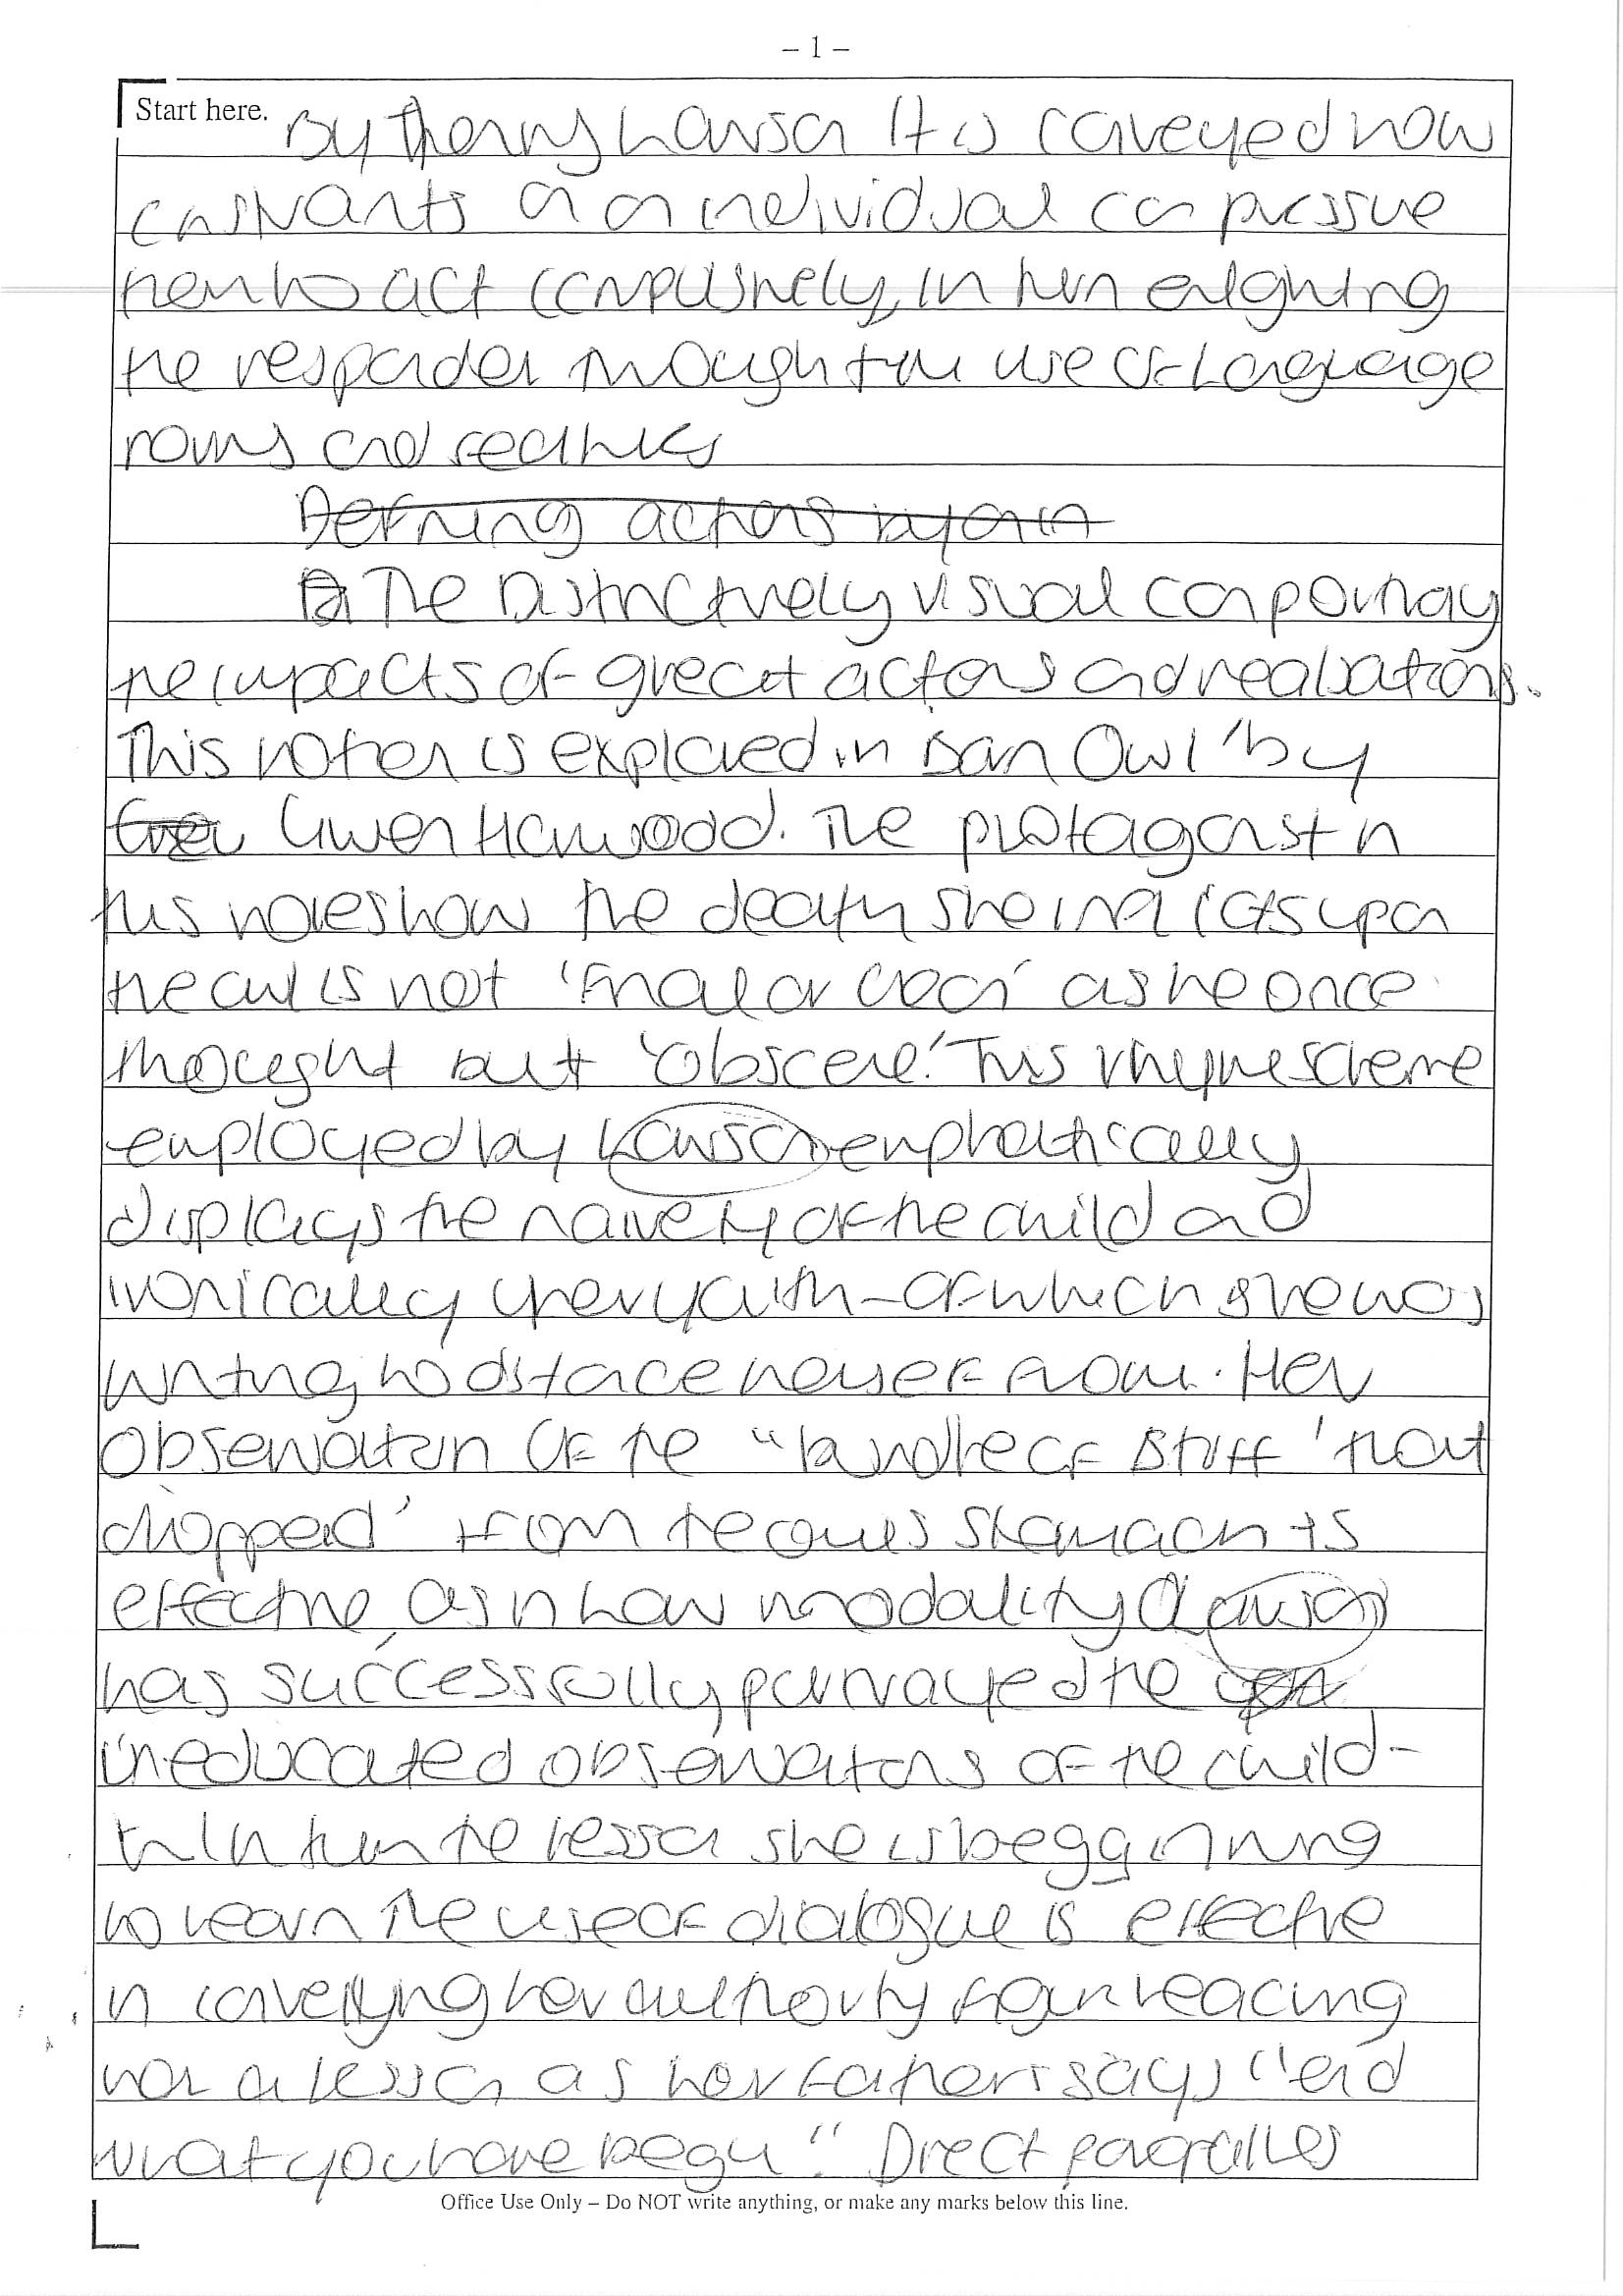 – 1 –
Start here. By Henry Lawson It is conveyed how
constraints on an individual can pressure
them to act compulsively, in turn enlighting
the responder through the use of Language
forms and features
Defining actions
The Distinctively visual can portray
the impacts of great actions and realisations.
This notion is explored in Barn Owl' by
Gwen Harwood. The protagonist in
this notes how the death she inflicts upon
the owl is not 'final or clean' as he once
thought but 'obscene'. This rhyme scheme
employed by Lawson emphatically
displays the naivety of the child and
ironically her youth – of which she was
wnting to distance herself from. Her
observation of the "bundle of stuff 'that
dropped' from the owls stomach is
effective, as in low modality Lawson
has successfully portrayed the
uneducated observations of the child –
In turn the lesson she is beggining
to learn The use of dialogue is effective
in conveying her authority figure teacing
her a lesson as her father says "end
what you have begun". Direct parallels
Office Use Only – Do NOT write anything, or make any marks below this line.